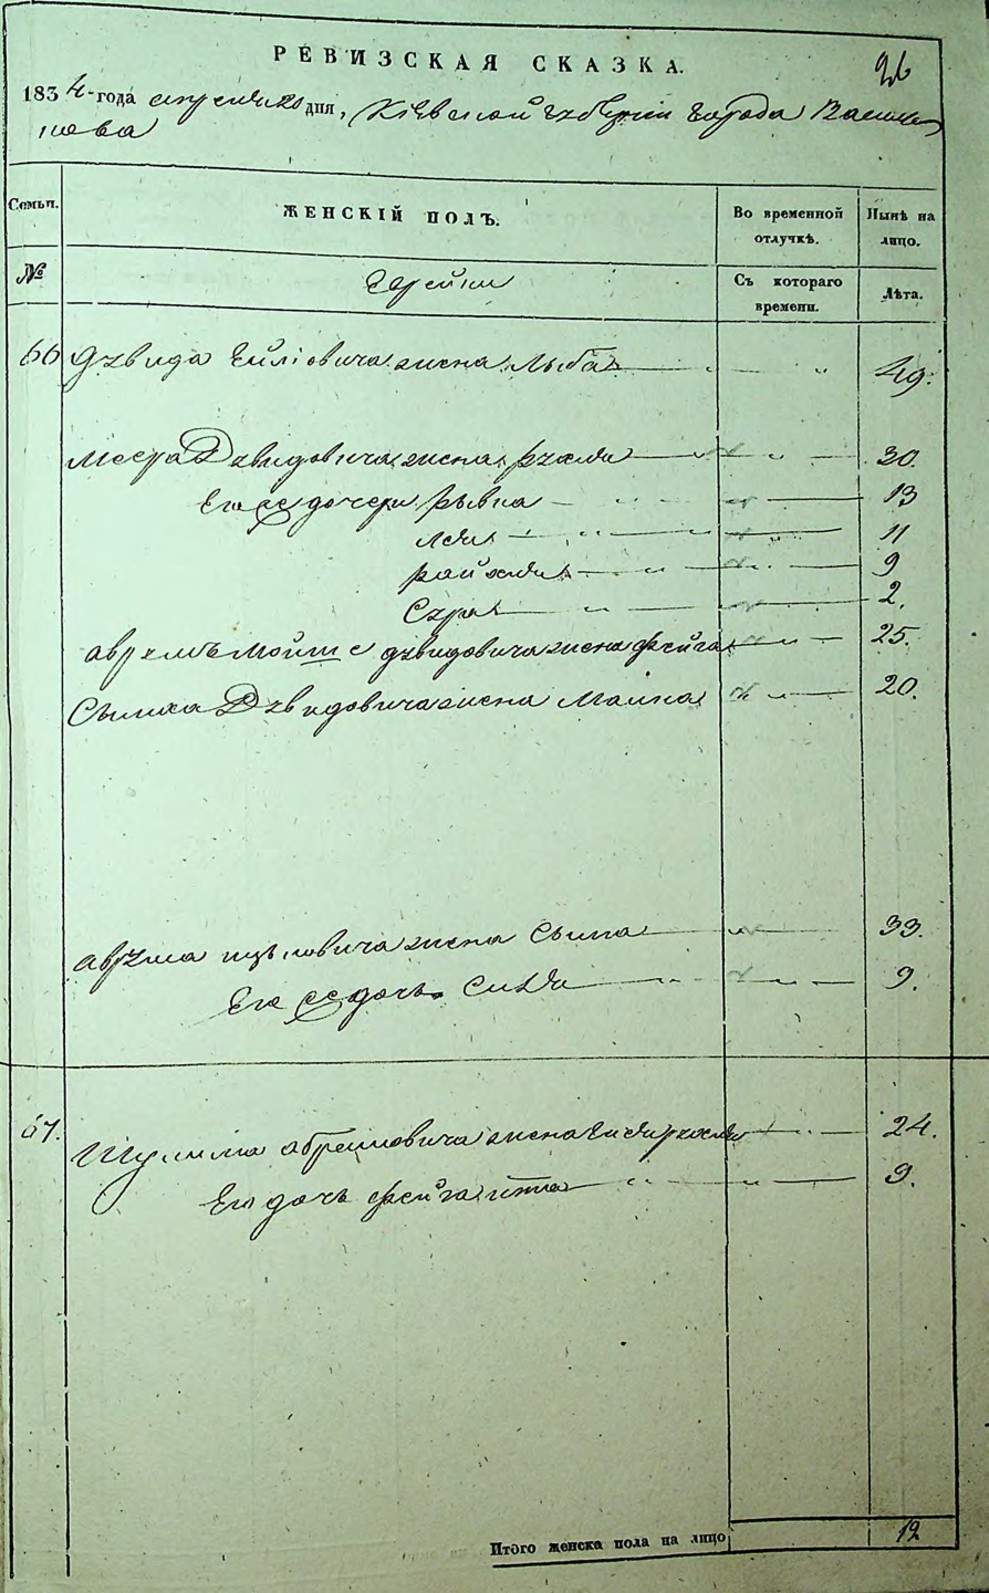 26
РЕВИЗСКАЯ СКАЗКА.
1834-года апреля 20 дня, Кіевской губерніи города Василь
кова
Семьи. ЖЕНСКІЙ ПОЛЪ. Во временной отлучкѣ. Нынѣ на лицо.
№ Еврейки Съ котораго времени. Лѣта.
66 Дувида жена Лыба 49.
Дувидовича жена Рухля 30.
Его дочери Рывка 13
Лея 11
Райхля 9
Сура 2.
Аврумъ Мойше Дувидовича жена Фейга 25.
Сымха Дувидовича жена Малка 20.
Аврума жена Сыма 33.
Его дочь 9.
67. Шулима Абрамовича жена 24.
Его дочь Фейга Итта 9.
Итого женска пола на лицо 12